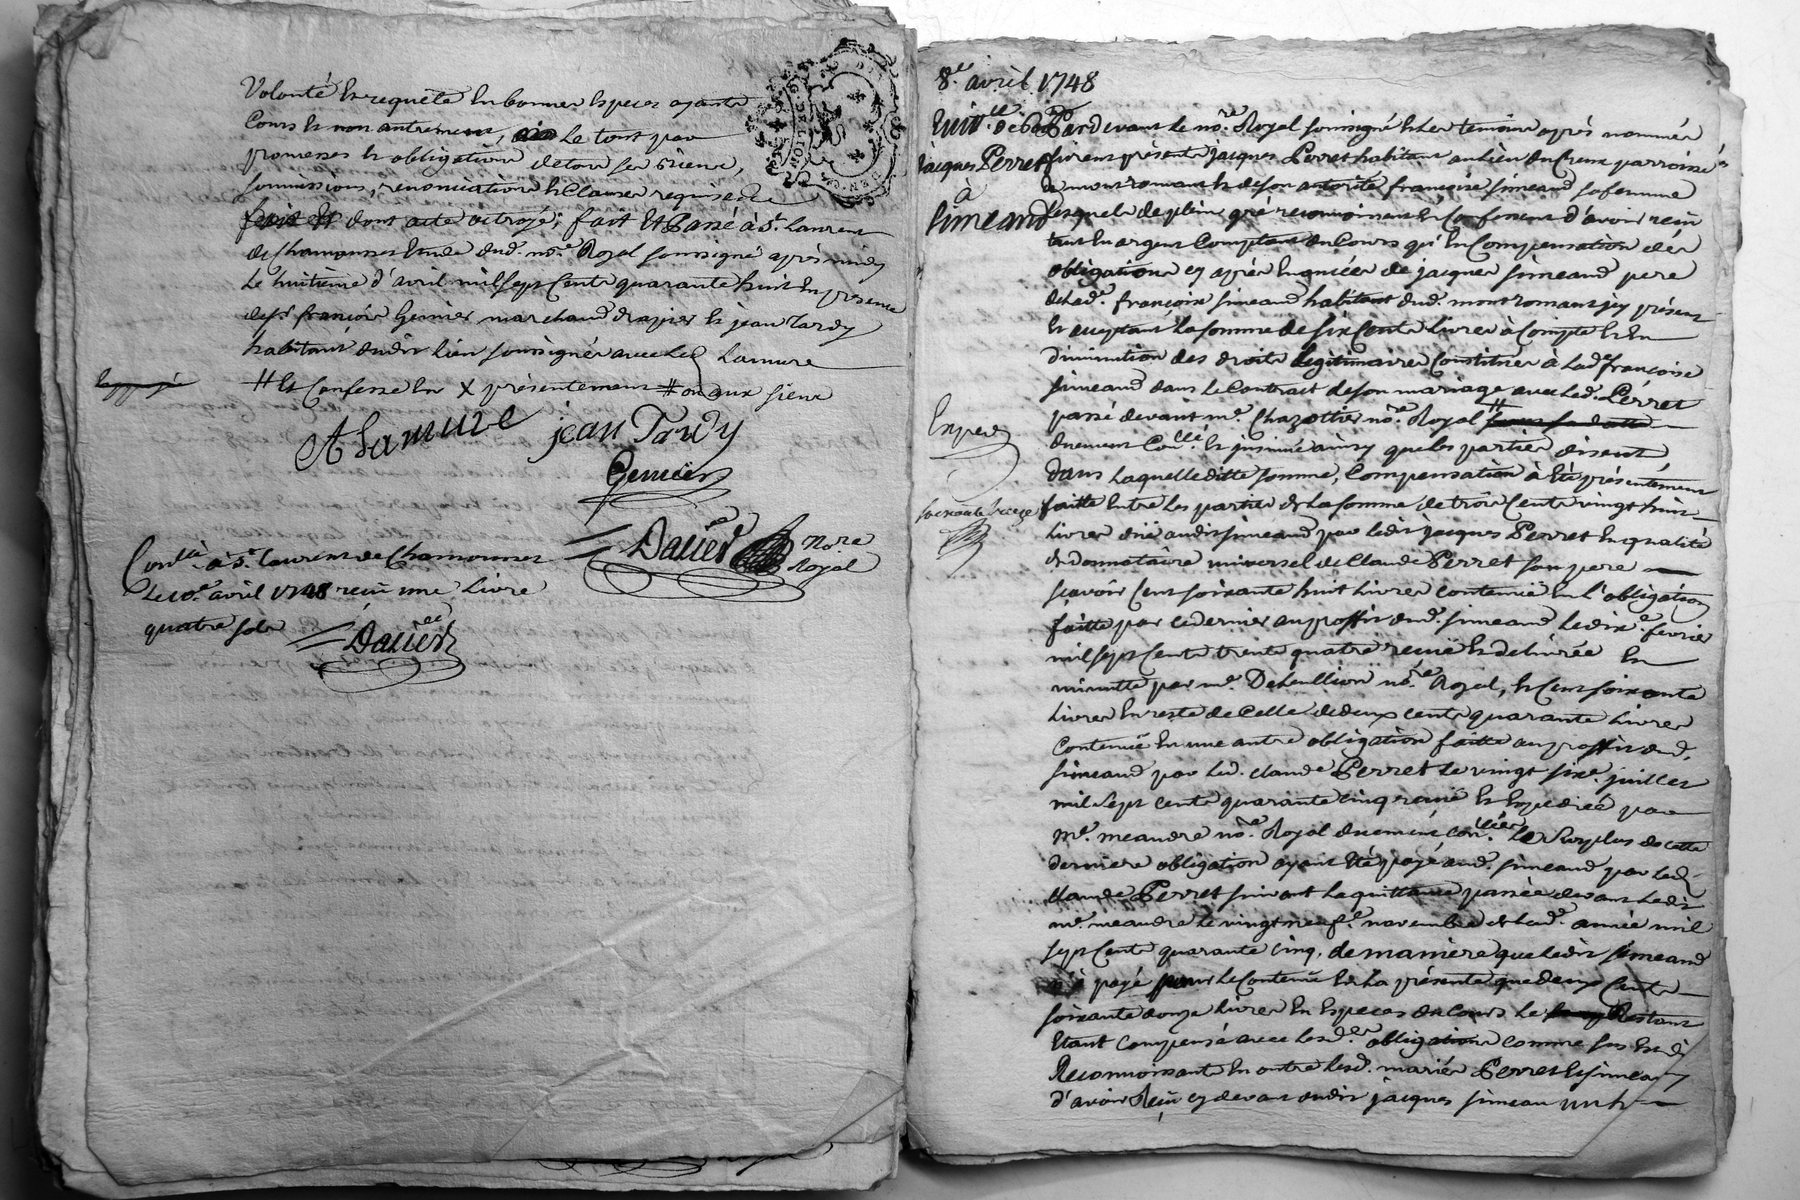 Volonté et requéte en bonnes especes ayants
Cours et non autrement, le tout par
promesses et obligations de tous ses biens,
soumissions, renonciations et Clauses requises
dont acte octroyé; fait Et Passé à St. Laurent
de Chamousset Etude dud. no.re Royal soussigné après midy
Le huitieme d'avril mil sept Cents quarante huit En presence
de sr. françois Genier marchand drapier et jean Tardy
habitants dudit Lieu soussignés avec Led. Lamure
# et Confesse En X présentement # ou aux siens
ALamure jean Tardy
Genier
Daüer No.re
Royal
Con.lé à St. Laurent de Chamousset
Le 10.e avril 1748 reçu une Livre
quatre sols
Daüer
8.e avril 1748
Quit.ce de 600
jacques Perret
à
Simeand
Pardevant Le no.re Royal soussigné et Les temoins après nommés
furent présents jacques Perret habitant au Lieu du Creux parroisse
de montromant et de son autorité françoise simeand sa femme
Lesquels de pleins gré reconnoissent et Confessent d'avoir reçu
tant En argent Comptant du Cours qu'En Compensation des
obligations cy après Enoncées de jacques simeand pere
de Lad.e françoise simeand habitant dud. montromant icy présent
et acceptant La somme de six Cents Livres à Compte et En
diminution des droits Legitimaires Constitués à Lad.e françoise
simeand dans Le Contract de son mariage avec Led. Perret
passé devant m.e Chazottier no.re Royal #
duement Con.lé et insinué ainsy que les parties disent
Dans Laquelle ditte somme, Compensation à Eté présentément
faitte Entre Les parties de La somme de trois Cents vingt huit
Livres düe audit simeand par Ledit jacques Perret En qualité
de donnataire universel de Claude Perret son pere
sçavoir Cent soixante huit Livres contenüe En L'obligation
faitte par ce dernier au proffit dud. simeand Le dix.e fevrier
mil sept Cents trente quatre reçüe et delivrée En
minutte par m.e Dehullion no.re Royal, et Cent soixante
Livres En reste de Celle de deux cents quarante Livres
Contenüe En une autre obligation faitte au proffit dud.
simeand par Led. claude Perret Le vingt six.e juillet
mil sept cents quarante cinq reçüe Et Expediée par
m.e meandre no.re Royal duement con.lée Le Surplus de cette
derniere obligation ayant Eté payé aud. simeand par Led.
claude Perret suivant La quittance passée devant Ledit
m.e meandre Le vingt neuf.e novembre de Lad.e année mil
sept Cents quarante Cinq, de maniere que Ledit simeand
n'à payé pour Le Contenu En La présente que deux Cents
soixante douze Livres En Especes du Cours Le Restant
Etant Compensé avec Lesd.es obligations comme sus Est dit
Reconnoissants En outre Lesd. mariés Perret et simeand
d'avoir Reçu cy devant dudit jacques simeand